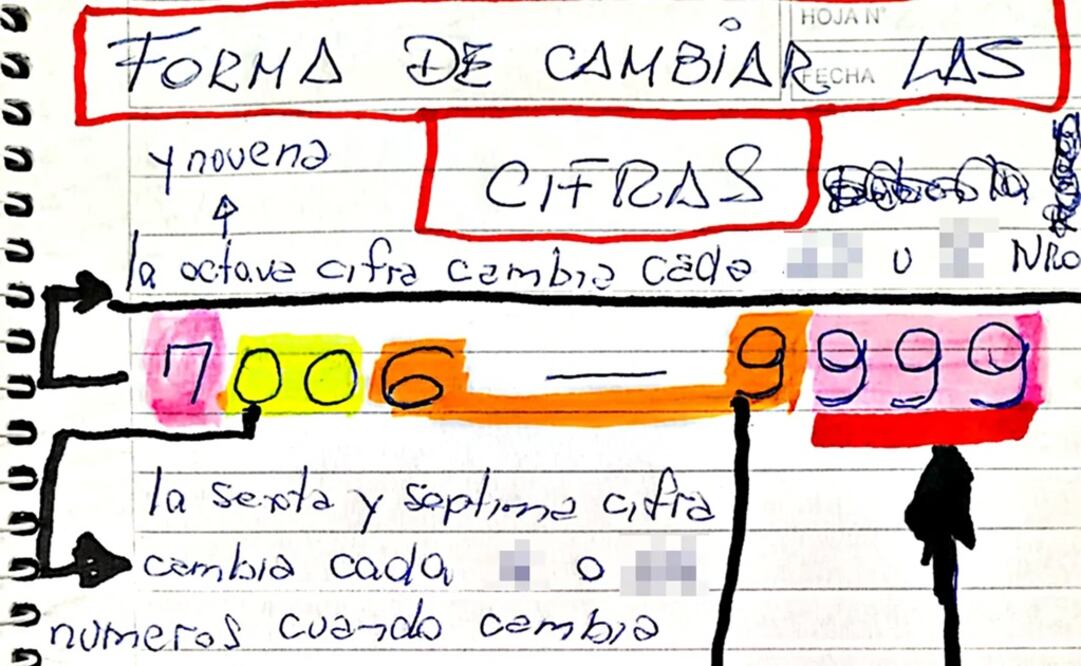 HOJA N°
FECHA
FORMA DE CAMBIAR LAS
CIFRAS
y novena
la octava cifra cambia cada u NRO
7006 — 9999
la sexta y septima cifra
cambia cada o
numeros cuando cambia